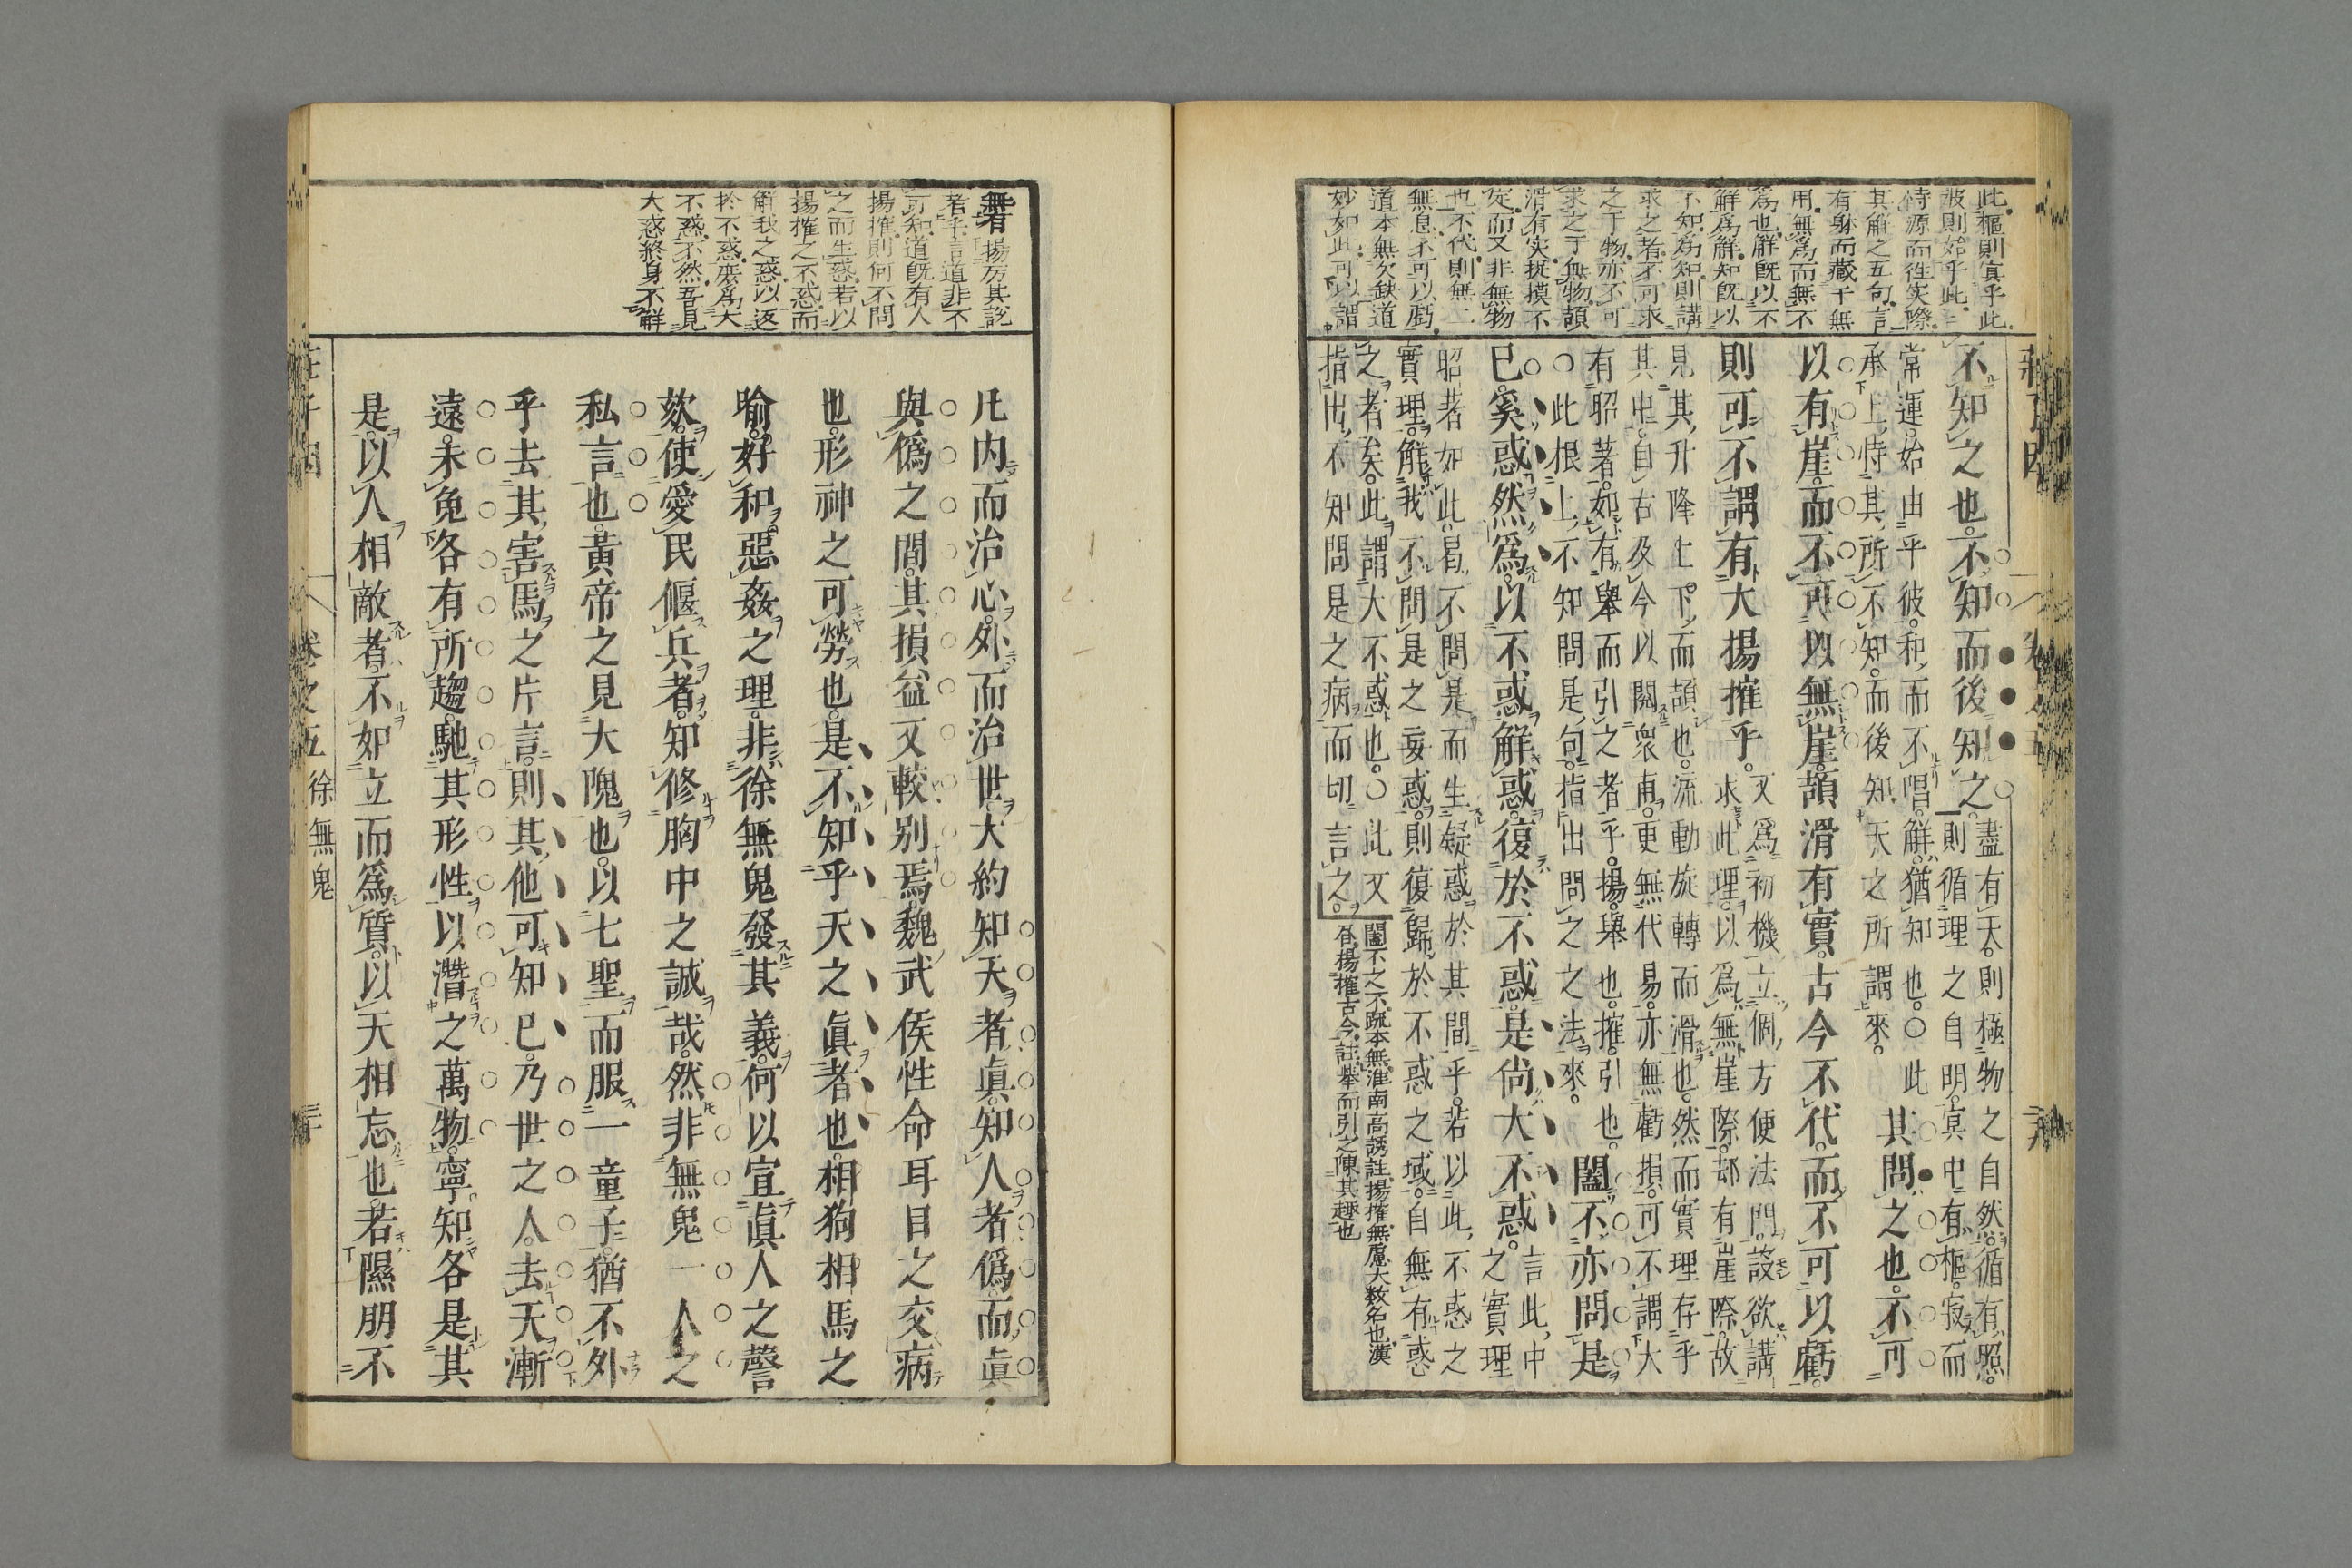 此樞則冥乎此
彼則始乎此
恃源而往実際
其解之五句言
有躰而藏于無
用無爲而無不
爲也解既以不
解爲解知既以
不知爲知則講
求之者不可求
之于物亦不可
求之于無物頡
滑有实捉摸不
定而又非無物
也不代則無二
無息不可以虧
道本無欠缺道
妙如此可以謂
不知之也不知而後知之
盡有天則極物之自然循有照
則循理之自明冥中有樞寂而
常運始由乎彼和而不唱解猶知也〇此
承上恃其所不知而後知天之所謂來
其問之也不可
以有崖而不可以無崖頡滑有實古今不代而不可以虧
則可不謂有大揚搉乎
又爲初機立個方便法門設欲講
求此理以爲無崖際却有崖際故
見其升降上下而頡也流動旋轉而滑也然而實理存乎
其中自古及今以閲衆甫更無代易亦無虧損可不謂大
有昭著如有舉而引之者乎揚舉也搉引也
〇此根上不知問是句指出問之之法來
闔不亦問是
已奚惑然爲以不惑解惑復於不惑是尚大不惑
言此中
之實理
昭著如此曷不問是而生疑惑於其間乎若以此不惑之
實理解我不問是之妄惑則復歸於不惑之域自無有惑
之者矣此謂大不惑也〇此又
指出不知問是之病而切言之
闔不之不疏本無淮南高誘註揚搉無慮大数名也漢
昏揚搉古今註举而引之陳其趣也
莊子因
卷之五
無者揚厉其説
者乎言道非不
可知道既有人
揚搉則何不問
之而生惑若以
揚搉之不惑而
解我之惑以返
於不惑庶爲大
不惑不然吾見
大惑終身不解
凡内而治心外而治世大約知天者眞知人者僞而眞
與僞之間其損益又較别焉魏武侯性命耳目之交病
也形神之可勞也是不知乎天之眞者也相狗相馬之
喻好和惡姦之理非徐無鬼發其義何以宜眞人之謦
欬使愛民偃兵者知修胸中之誠哉然非無鬼一人之
私言也黄帝之見大隗也以七聖而服一童子猶不外
乎去其害馬之片言則其他可知已乃世之人去天漸
遠未免各有所趨馳其形性以潛之萬物寧知各是其
是以人相敵者不如立而爲質以天相忘也若隰朋不
莊子因
卷之五 徐無鬼
三十